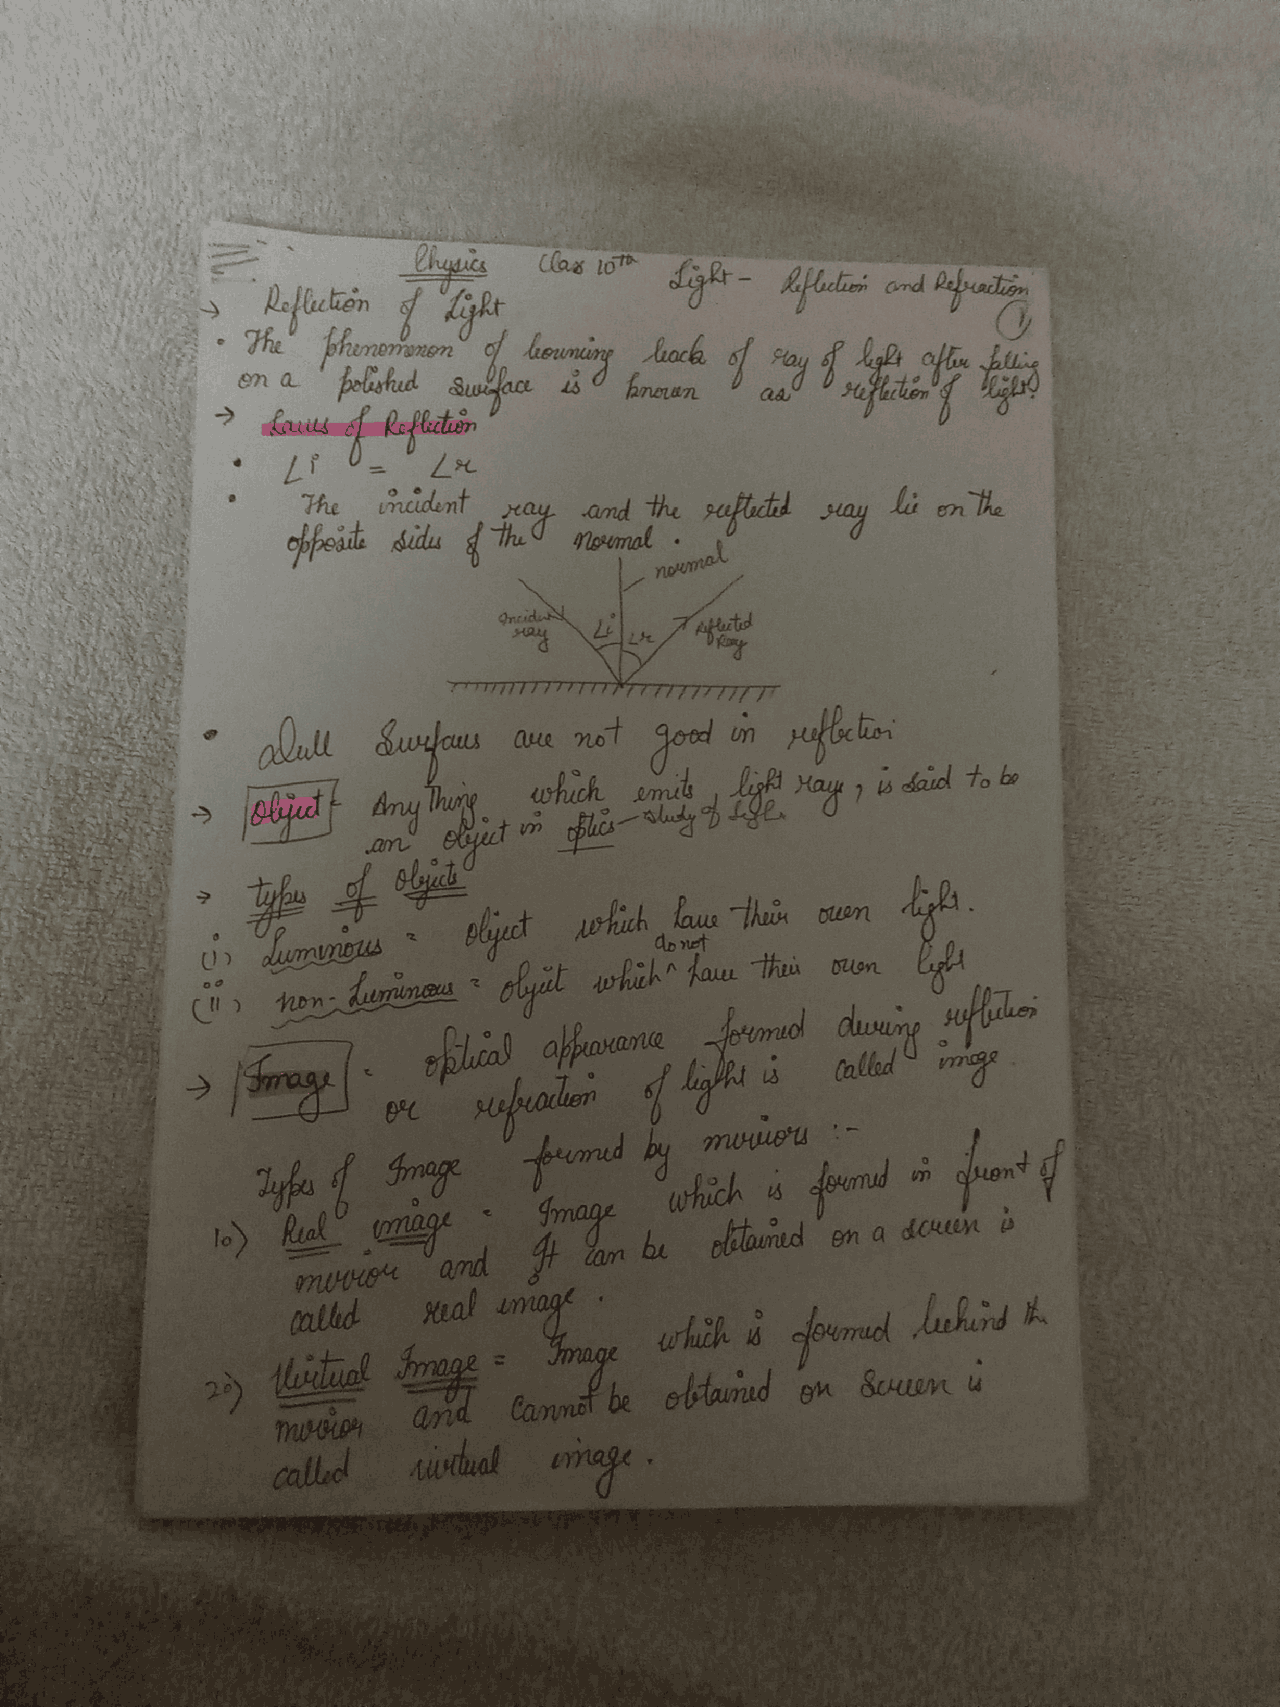 Physics Class 10th Light - Reflection and Refraction
1
→ Reflection of Light
• The phenomenon of bouncing back of ray of light after falling
on a polished surface is known as reflection of light.
→ Laws of Reflection
• ∠i = ∠r
• The incident ray and the reflected ray lie on the
opposite sides of the normal.
normal
Incident ray
∠i
∠r
Reflected Ray
• Dull Surfaces are not good in reflection
→ Object = Anything which emits light rays, is said to be
an object in optics - study of Light
→ types of Objects
(i) Luminous = object which have their own light.
do not
(ii) non-Luminous = object which ^ have their own light
→ Image = optical appearance formed during reflection
or refraction of light is called image.
Types of Image formed by mirriors :-
1o) Real image = Image which is formed in front of
mirrior and It can be obtained on a screen is
called real image.
2o) Virtual Image = Image which is formed behind the
mirrior and cannot be obtained on screen is
called virtual image.